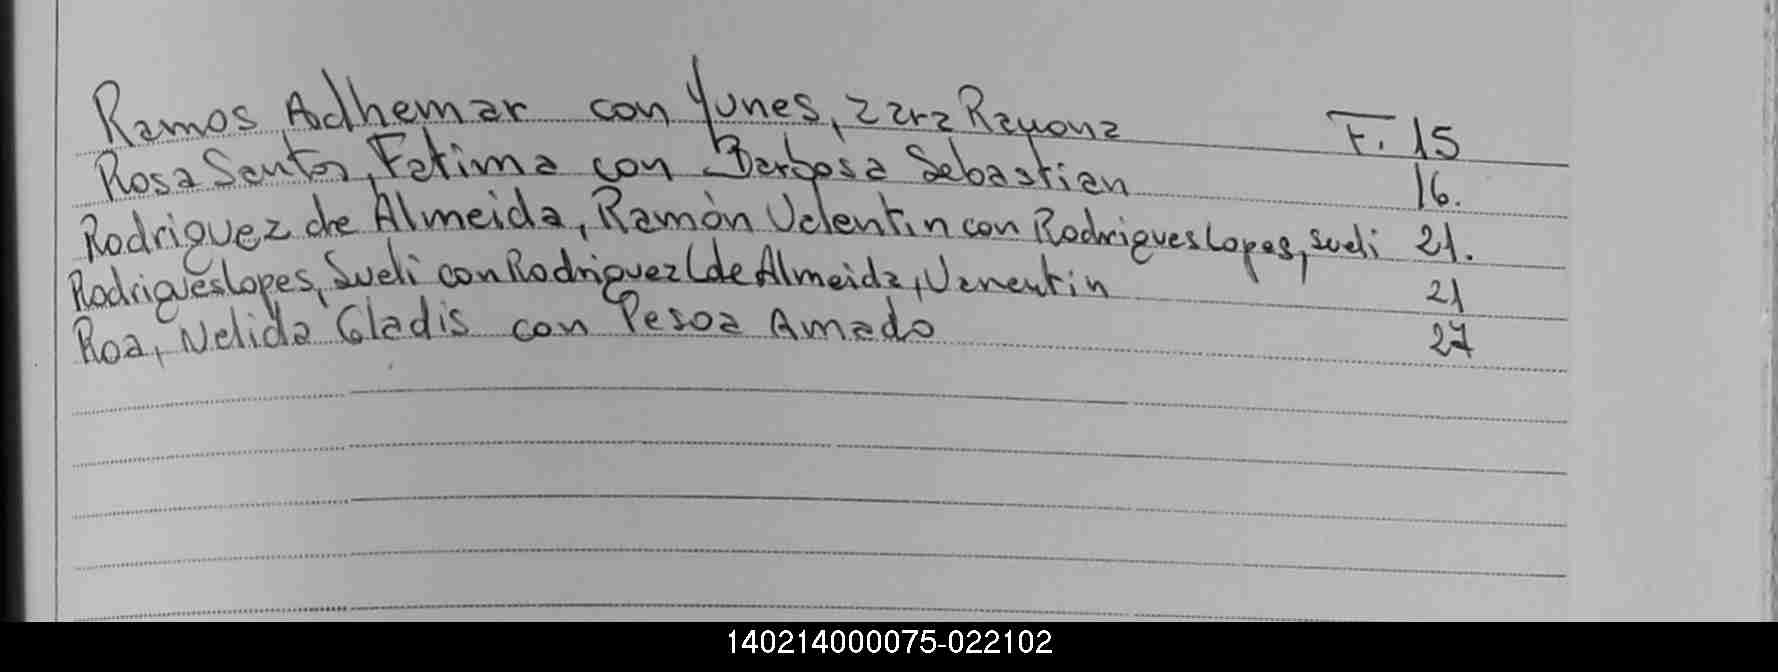 Ramos Adhemar con Yunes, Zara Rayona F. 15
Rosa Santos, Fatima con Barbosa Sebastian 16.
Rodriguez de Almeida, Ramón Valentin con Rodrigueslopes, Sueli 21.
Rodrigueslopes, Sueli con Rodriguez (de Almeida, Vanentin 21
Roa, Nelida Gladis con Pesoa Amado 27
140214000075-022102